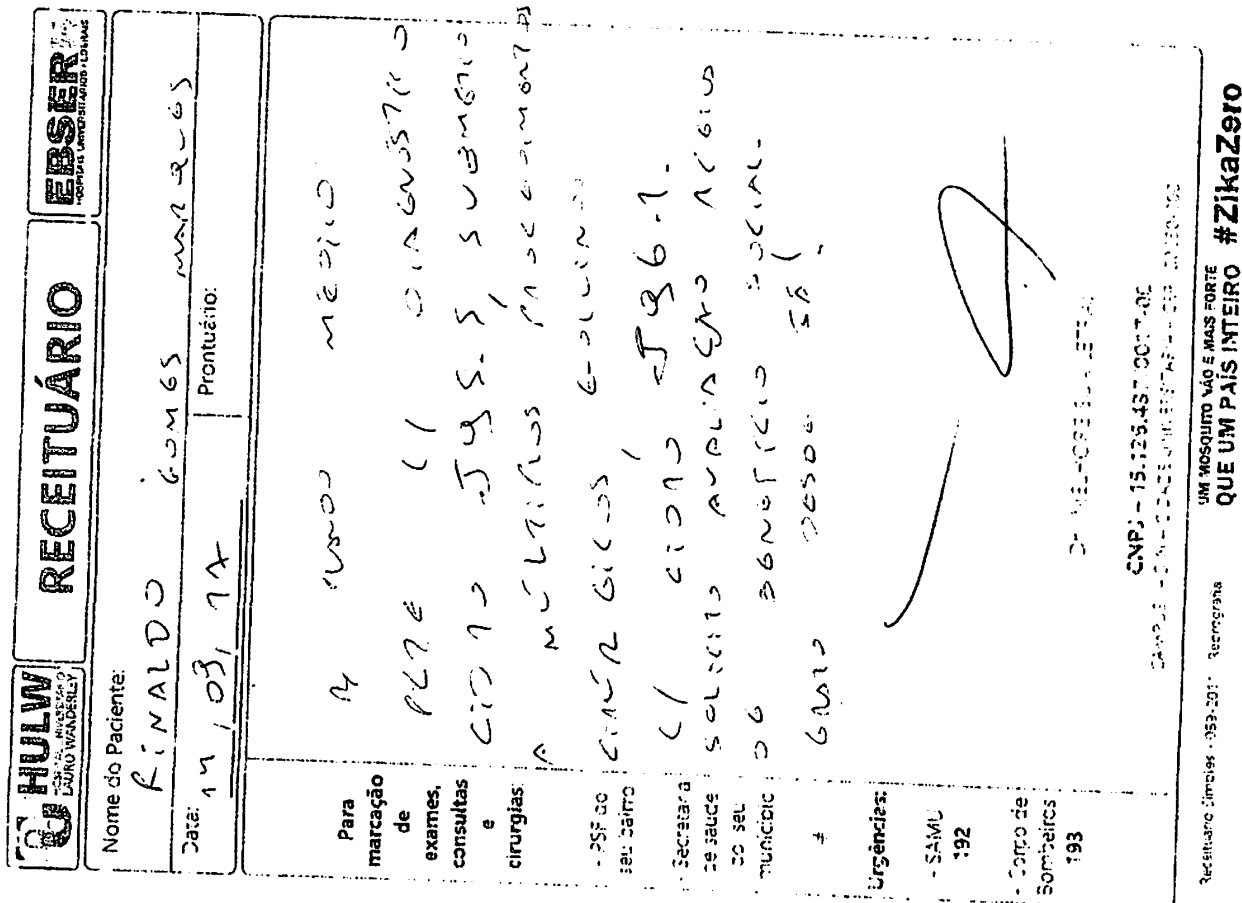 HULW
HOSPITAL UNIVERSITÁRIO
LAURO WANDERLEY
RECEITUÁRIO
EBSERH
HOSPITAIS UNIVERSITÁRIOS FEDERAIS
Nome do Paciente:
RINALDO GOMES MARQUES
Data: 14, 03, 17
Prontuário:
Para
marcação
de
exames,
consultas
e
cirurgias:
- PSF do
seu bairro
- Secretaria
de saúde
do seu
município
Urgências:
- SAMU
192
- Corpo de
Bombeiros
193
LAUDO MÉDICO
PCTE C/ DIAGNÓSTICO
CID 10 J95.5, SUBMETIDO
A MÚLTIPLOS PROCEDIMENTOS
CIRÚRGICOS EVOLUINDO
C/ CID 10 J96.1.
SOLICITO AVALIAÇÃO
DE BENEFÍCIO SOCIAL.
GRATO DESDE JÁ!
CNPJ - 15.126.437
Receituário Simples - 059-2011 Reprografia
UM MOSQUITO NÃO É MAIS FORTE
QUE UM PAÍS INTEIRO #ZikaZero